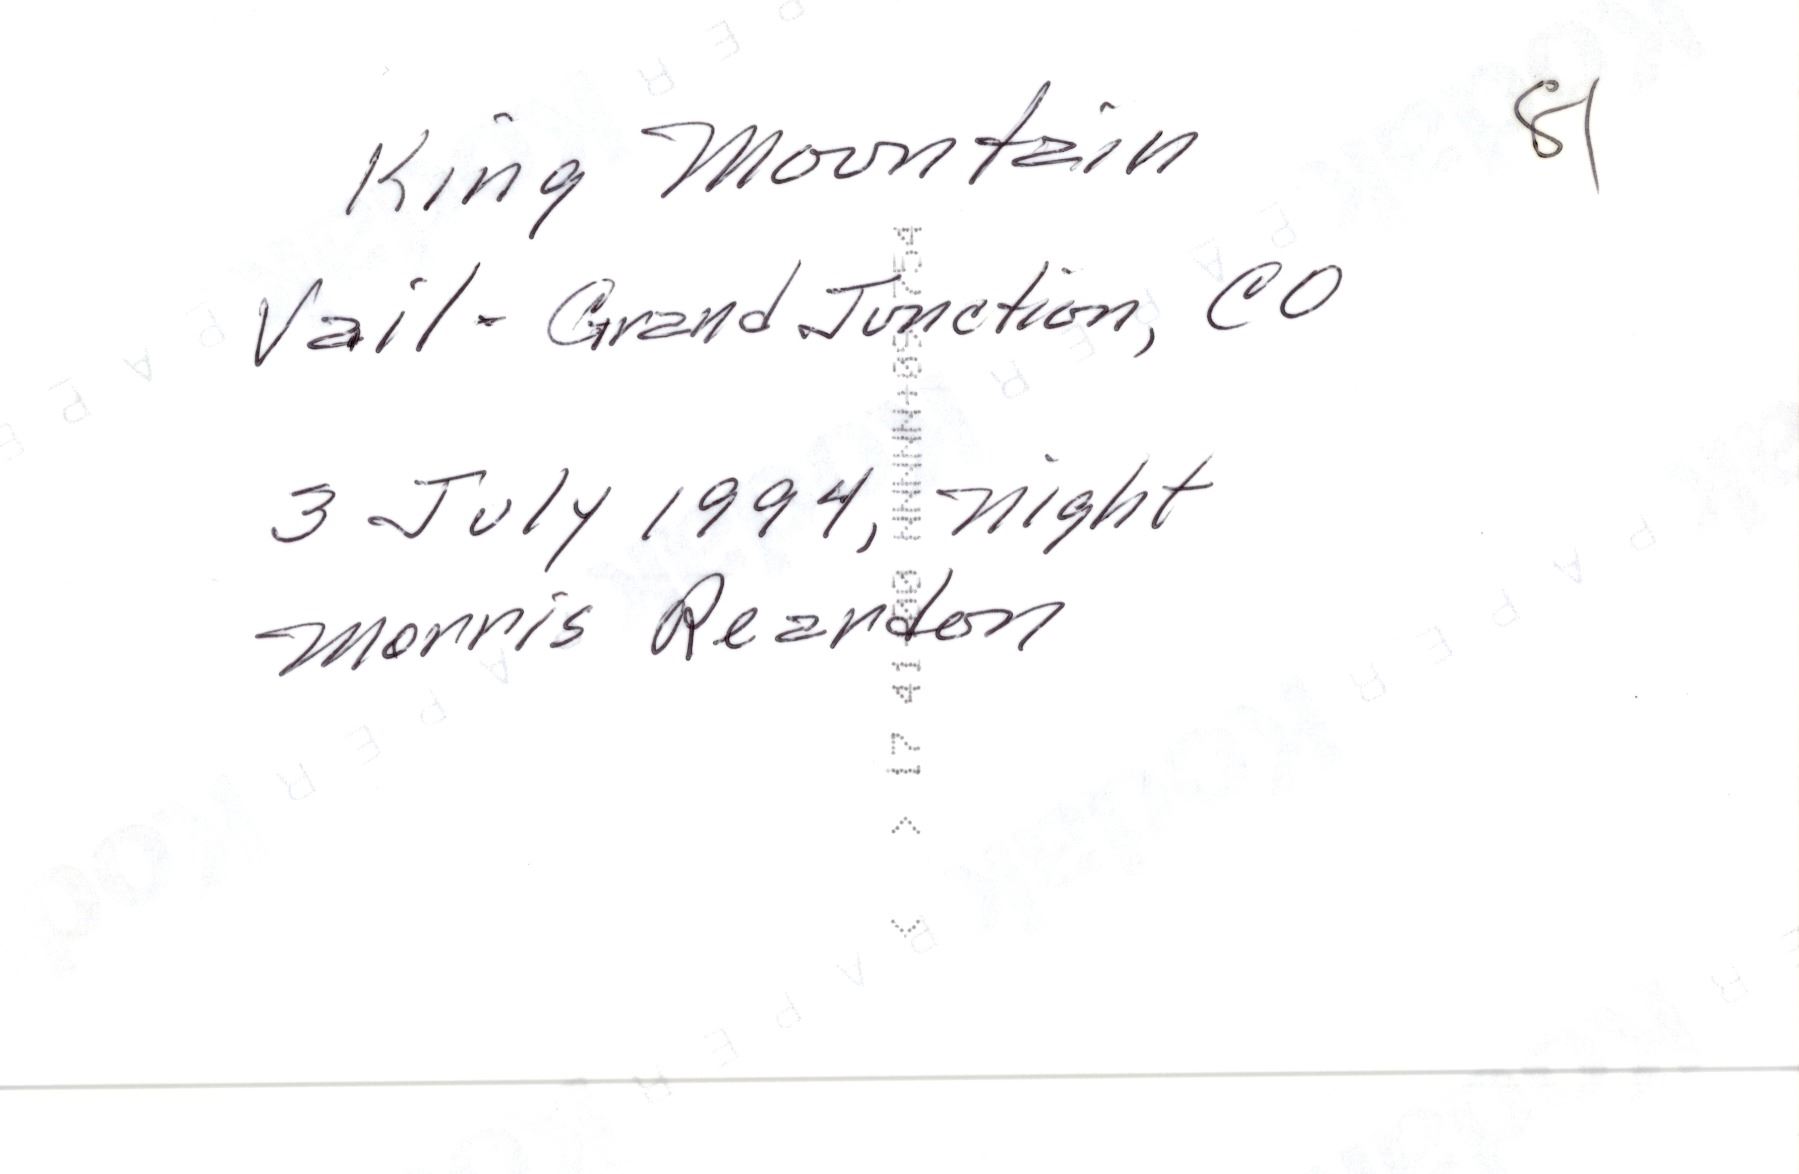 King Mountain
81
Vail - Grand Junction, CO
3 July 1994, night
Morris Reardon